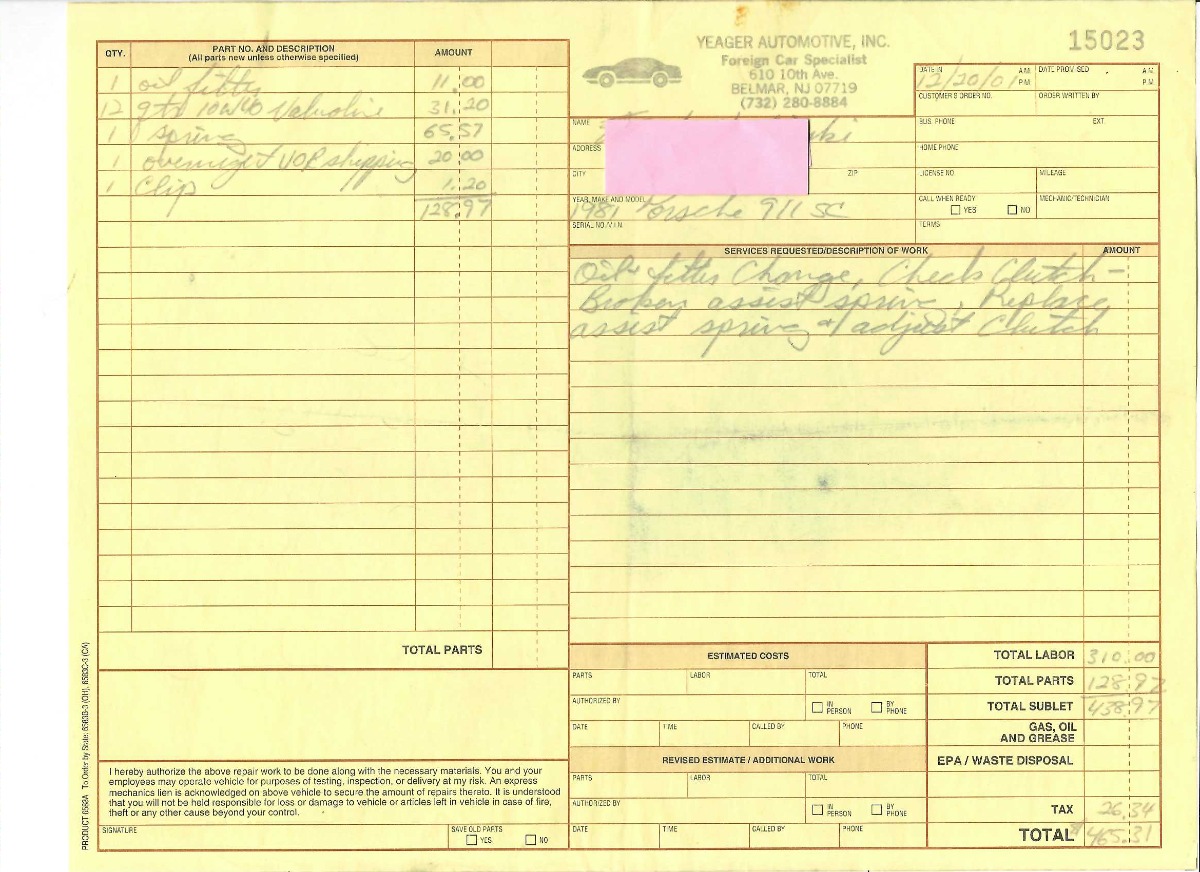 YEAGER AUTOMOTIVE, INC.
Foreign Car Specialist
610 10th Ave.
BELMAR, NJ 07719
(732) 280-8884
15023
QTY. PART NO. AND DESCRIPTION AMOUNT
(All parts new unless otherwise specified)
1 oil filter 11.00
12 qts 10W40 Valvoline 31.20
1 spring 65.57
1 overnight UOP shipping 20.00
1 Clip 1.20
128.97
TOTAL PARTS
DATE IN 12/20/01 A.M. P.M. DATE PROMISED A.M. P.M.
CUSTOMER'S ORDER NO. ORDER WRITTEN BY
NAME BUS. PHONE EXT.
ADDRESS HOME PHONE
CITY ZIP LICENSE NO. MILEAGE
YEAR, MAKE AND MODEL 1981 Porsche 911 SC CALL WHEN READY YES NO MECHANIC/TECHNICIAN
SERIAL NO./V.I.N. TERMS
SERVICES REQUESTED/DESCRIPTION OF WORK AMOUNT
Oil & filter Change, Check Clutch -
Broken assist spring. Replace
assist spring & adjust Clutch
ESTIMATED COSTS
PARTS LABOR TOTAL
AUTHORIZED BY IN PERSON BY PHONE
DATE TIME CALLED BY PHONE
REVISED ESTIMATE / ADDITIONAL WORK
PARTS LABOR TOTAL
AUTHORIZED BY IN PERSON BY PHONE
DATE TIME CALLED BY PHONE
TOTAL LABOR 310.00
TOTAL PARTS 128.97
TOTAL SUBLET 438.97
GAS, OIL
AND GREASE
EPA / WASTE DISPOSAL
TAX 26.34
TOTAL $465.31
I hereby authorize the above repair work to be done along with the necessary materials. You and your
employees may operate vehicle for purposes of testing, inspection, or delivery at my risk. An express
mechanics lien is acknowledged on above vehicle to secure the amount of repairs thereto. It is understood
that you will not be held responsible for loss or damage to vehicle or articles left in vehicle in case of fire,
theft or any other cause beyond your control.
SIGNATURE SAVE OLD PARTS YES NO
PRODUCT 6583A To Order by State: 6583B-3 (OH), 6583C-3 (CA)